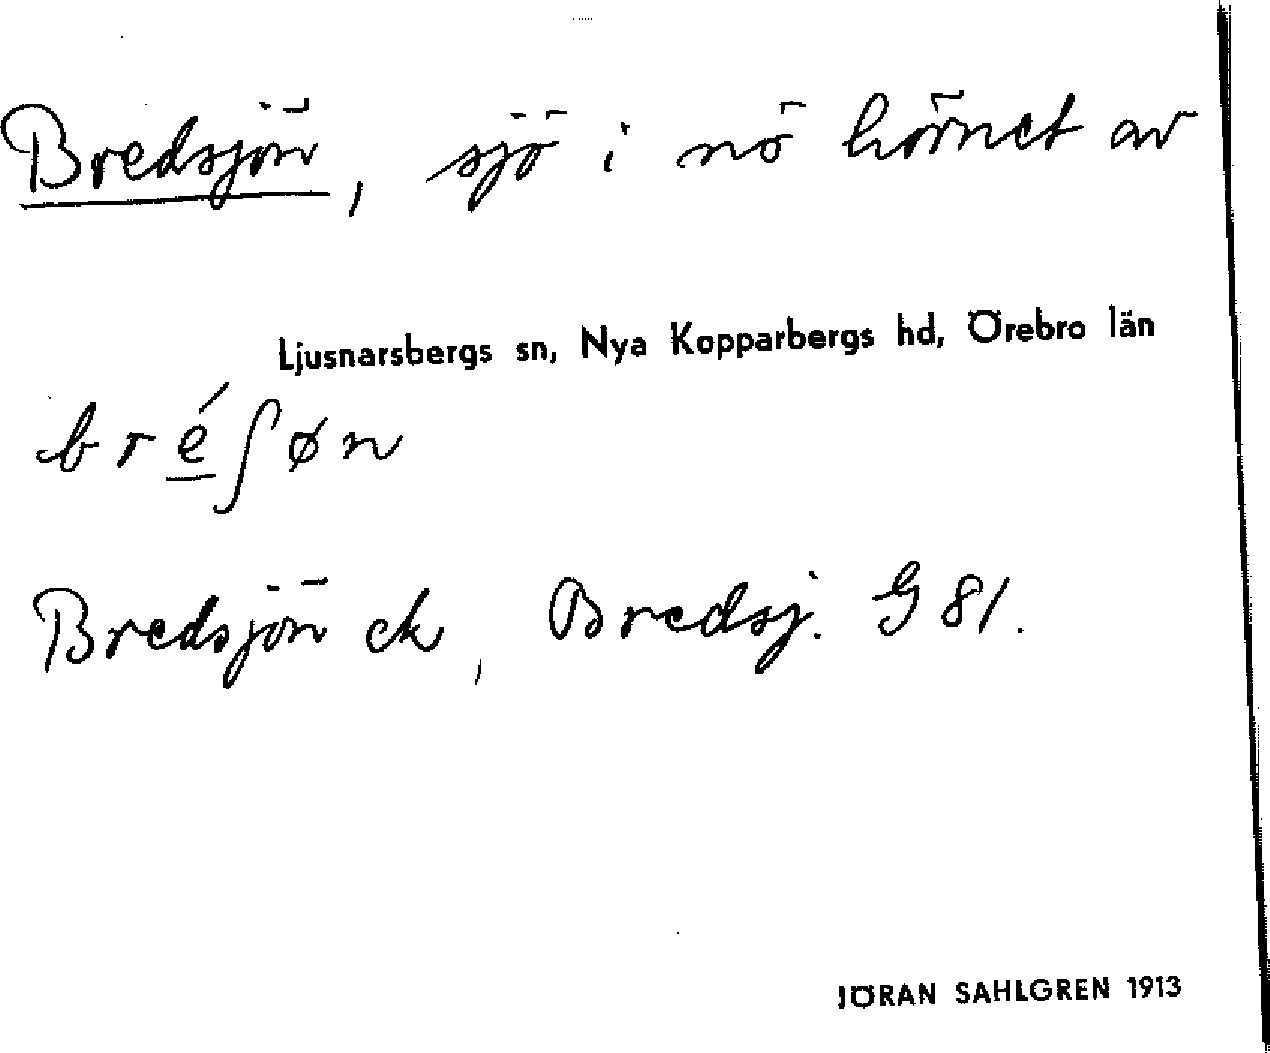 Bredsjön, sjö i nö hörnet av
Ljusnarsbergs sn, Nya Kopparbergs hd, Örebro län
bré̲ʃøn
Bredsjön ek, Bredsj. G 81.
JÖRAN SAHLGREN 1913